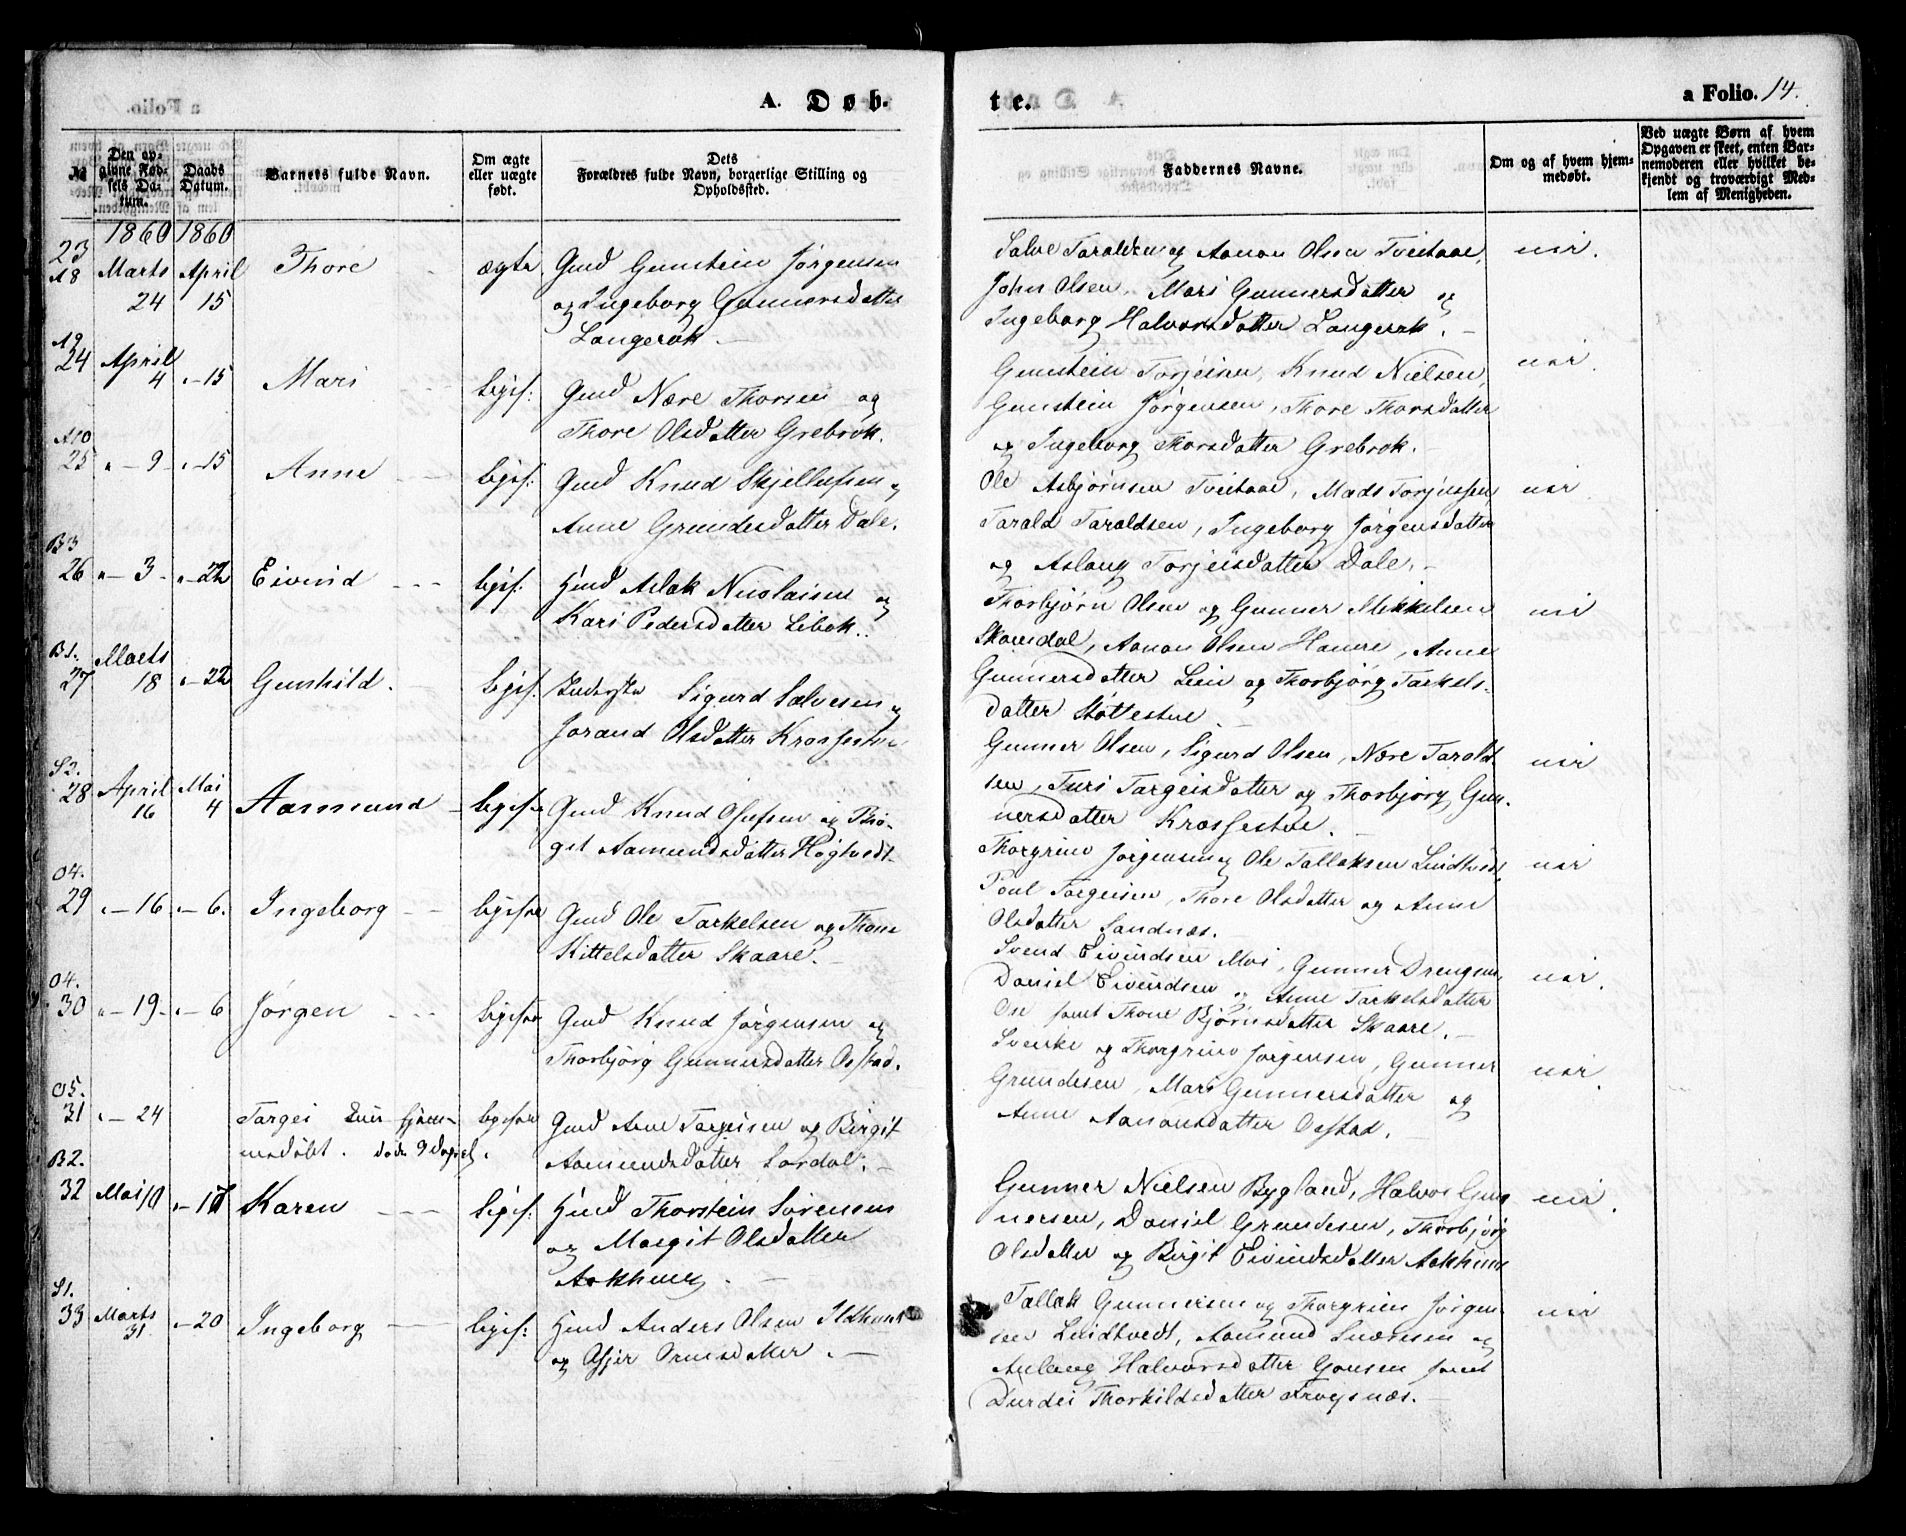 A. Døb-
te.
a Folio. 14.
№
Den opgivne Fødsels Datum.
Daabs Datum.
Barnets fulde Navn.
Om ægte eller uægte født.
Dets Forældres fulde Navn, borgerlige Stilling og Opholdssted.
Faddernes Navne.
Om og af hvem hjemmedøbt.
Ved uægte Børn af hvem Opgaven er skeet, enten Barnemoderen eller hvilket bekjendt og troværdigt Medlem af Menigheden.
1860 1860
23 A8 Marts 24 April 15 Thore ægte Gmd Gunstein Jørgensen
og Ingeborg Gunnersdatter
Langerak.
Salve Taraldsen og Aanon Olsen Tveitaae,
John Olsen, Mari Gunnersdatter og
Ingeborg Halvorsdatter Langerak.
nei.
A9 24 April 4 "-15 Mari liges: Gmd Nære Thorsen og
Thore Olsdatter Grebrok.
Gunstein Torjeisen, Knud Nielsen,
Gunstein Jørgensen, Thore Thorsdatter
og Ingeborg Thorsdatter Grebrok.
nei.
A10 25 "-9- "-15 Anne ligs: Gmd Knud Skjellufsen og
Anne Grundesdatter Dale.
Ole Asbjørnsen Tveitaae, Mads Torjussen
Tarald Taraldsen, Ingeborg Jørgensdatter
og Aslaug Torjeisdatter Dale.
nei
B3 26 "-3- "-22 Eivind ligs: Hmd Aslak Nicolaisen og
Kari Pedersdatter Libok.
Thorbjørn Olsen og Gunner Mikkelsen
Skomdal, Aanon Olsen Hamre, Anne
Gunnersdatter Lien og Thorbjørg Tarkels-
datter Støttestue.
nei
B1. 27 Marts 18 "-22 Gunhild. ligs: Inderste Sigurd Salvesen og
Jorand Olsdatter Krossestue
Gunner Olsen, Sigurd Olsen, Nære Tarald-
sen, Turi Targeisdatter og Thorbjørg Gun-
nersdatter Krossestue.
nei
S2. 28 April 16 Mai 4 Aasmund ligesaa Gmd Knud Olufsen og Bir-
git Aamundsdatter Høgtvedt
Thorgrim Jørgensen og Ole Tallaksen Lindtvedt,
Poul Torgeisen, Thore Olsdatter og Anne
Olsdatter Sandnæs.
nei
O4. 29 "-16 "-6. Ingeborg ligesaa Gmd Ole Tarkelsen og Thone
Kittelsdatter Skaare.
Svend Eivindsen Moi, Gunner Drengsen
Daniel Eivindsen og Anne Tarkelsdatter
Ose samt Thone Bjørnsdatter Skaare.
nei.
O4. 30 "-19- "-6 Jørgen ligesaa Gmd Knud Jørgensen og
Thorbjørg Gunnersdatter Ose stad.
Svenke og Thorgrim Jørgensen, Gunner
Grundesen, Mari Gunnersdatter og
Anne Aanonsdatter Ose stad.
nei.
O5. 31 "-24 Targei hjem-
medøbt. død 9 Dage ligesaa Gmd Arne Targeisen og Birgit
Aamundsdatter Sordal.
B2. 32 Mai 10 "-17 Karen ligs: Hmd Thorstein Sørensen
og Margit Olsdatter
Aakhus.
Gunner Nielsen Bygland, Halvor Gun-
nersen, Daniel Grundesen, Thorbjørg
Olsdatter og Birgit Eivindsdatter Aakhus
nei.
S1. 33 Marts 31. "-20 Ingeborg ligs: Hmd Anders Olsen
og Asjer Ormsdatter.
Tallak Gunnersen og Thorgrim Jørgen-
sen Lindtvedt, Aamund Sveinsen og
Aslaug Halvorsdatter samt
Durdei Thorkildsdatter Frøysnæs.
nei